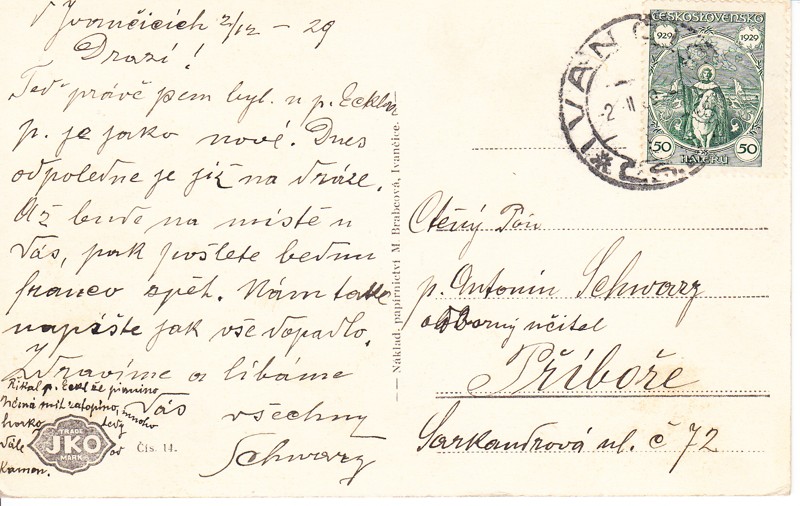 V Ivančicích 2/12 - 29
Drazí!
Teď právě jsem byl u p. Eckla
p. je jako nové. Dnes
odpoledne je již na dráze.
Až bude na místě u
Vás, pak pošlete bednu
franco zpět. Nám také
napište jak vše dopadlo.
Zdravíme a líbáme
Vás všechny
Schwarz
Říkal p. Eckl že pianino
Nesmí mít zatopíno, mnoho
horko tedy
dále od
Kamen.
TRADE
JKO
MARK
Čís. 14.
— Náklad. papírnictví M. Brabcová, Ivančice. —
IVANČ
2
ČESKOSLOVENSKO
929 1929
50 HALÉŘŮ 50
Ctěný Pán
p. Antonín Schwarz
odborný učitel
Příboře
Sarkandrová ul. č 72